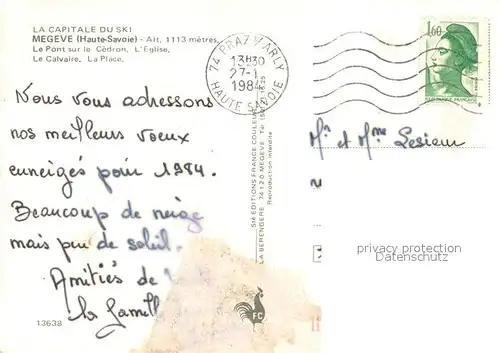 LA CAPITALE DU SKI
MEGEVE (Haute-Savoie) - Alt. 1113 mètres
Le Pont sur le Cédron, L'Eglise,
Le Calvaire, La Place.
74 PRAZ S/ARLY
13H30
27-1
1984
HAUTE SAVOIE
1,60
REPUBLIQUE FRANÇAISE
Nous vous adressons
nos meilleurs voeux
enneigés pour 1984.
Beaucoup de neige
mais peu de soleil.
Amitiés de
la famill
Mr et Mme Lesieur
Sté EDITIONS FRANCE COULEUR
LA BERENGERE 74120 MEGEVE
Reproduction interdite
privacy protection
Datenschutz
FC
13638